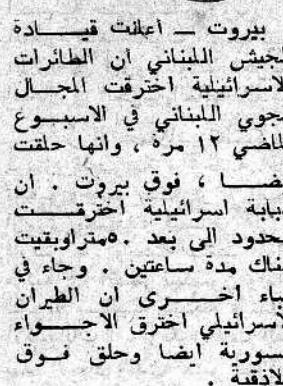 بيروت ــ أعلنت قيــادة
لجيش اللبناني ان الطائرات
لاسرائيلية اخترقت المجـال
لجوي اللبناني في الاسبـوع
لماضي ١٢ مرة ، وانها حلقت
يضــا ، فوق بيروت . ان
بابة اسرائيلية اخترقــت
لحدود الى بعد ٥٠متراوبقيت
ناك مدة ساعتين . وجاء في
باء اخـــرى ان الطيران
لاسرائيلي اخترق الاجــواء
لسورية ايضا وحلق فــوق
للاذقية .